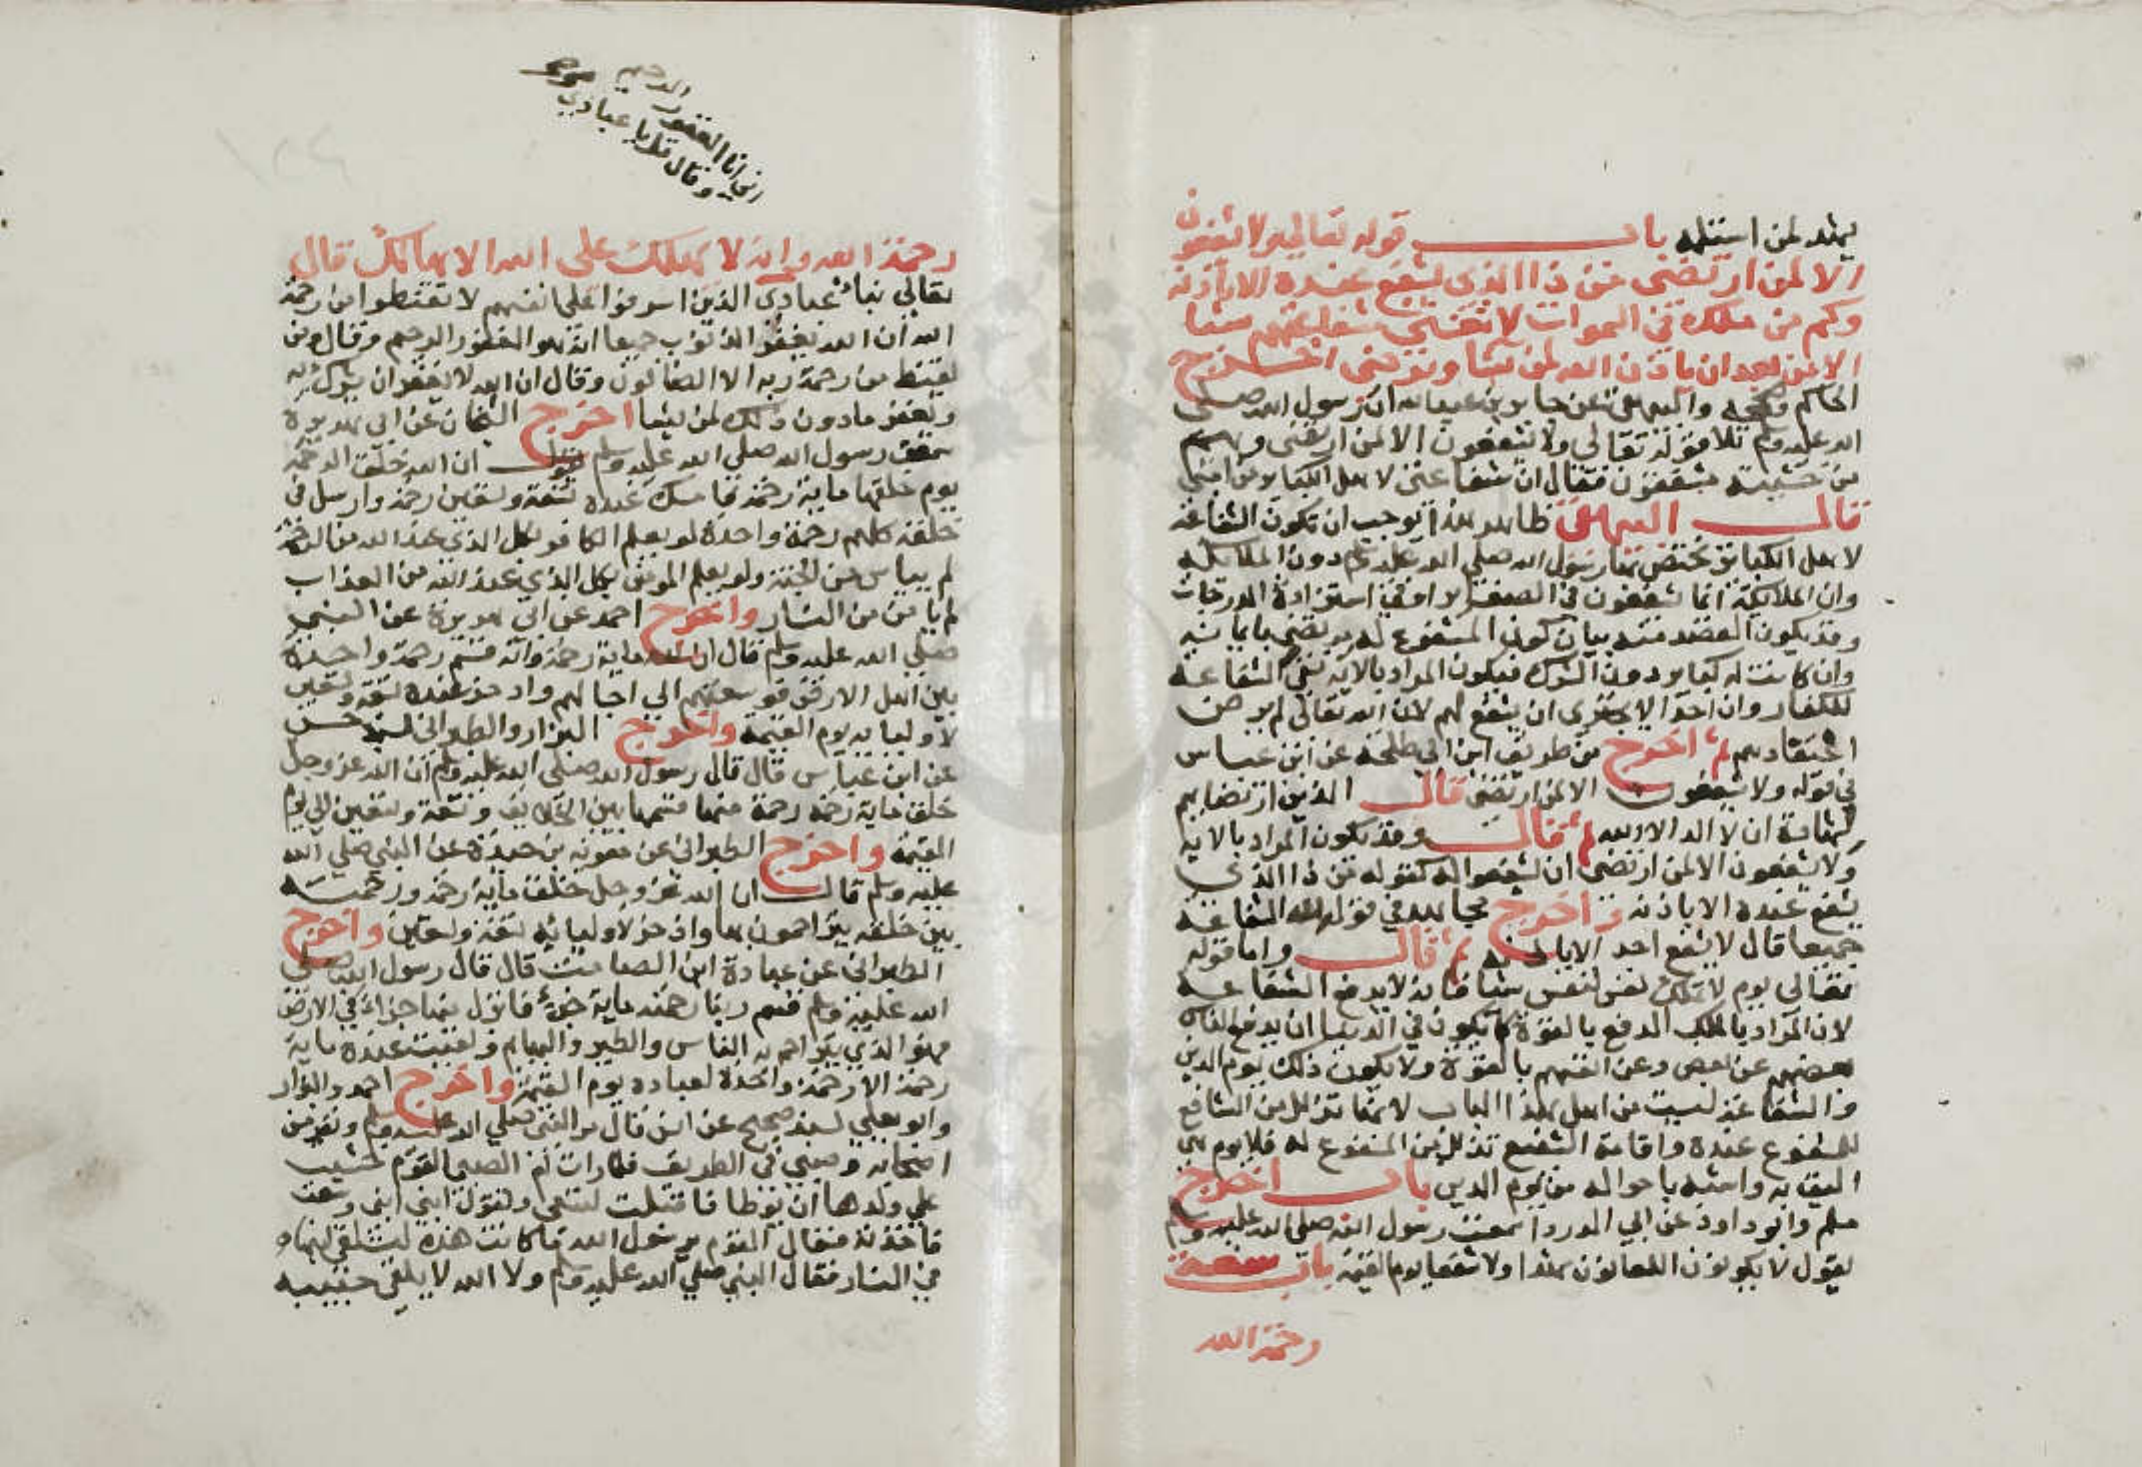 يشهد لمن استلمه باب قوله تعالى ولا يشفعون
الا لمن ارتضى من ذا الذي يشفع عنده الا باذنه
وكم من ملك في السموات لا تغني شفاعتهم شيئا
الا من بعد ان ياذن الله لمن يشا ويرضى اخرج
الحاكم وصححه والبيهقي عن جابر بن عبد الله ان رسول الله صلى
الله عليه وسلم تلا قوله تعالى ولا يشفعون الا لمن ارتضى وهم
من خشيته مشفقون فقال ان شفاعتي لاهل الكباير من امتي
قال البيهقي ظاهر هذا يوجب ان تكون الشفاعة
لاهل الكباير تختص بها رسول الله صلى الله عليه وسلم دون الملائكة
وان الملائكة انما يشفعون في الصغاير او في استزادة الدرجات
وقد يكون القصد منه بيان كون المشفوع له مرتضى بايمانه
وان كانت له كباير دون الشرك فيكون المراد بالاية نفي الشفاعة
للكفار وان احدا لا يجترى ان يشفع لهم لان الله تعالى لم يرض
اعتقادهم ثم اخرج من طريق ابن ابي طلحة عن ابن عباس
في قوله ولا يشفعون الا لمن ارتضى قال الذين ارتضاهم
لشهادة ان لا اله الا الله ثم قال وقد يكون المراد بالاية
ولا يشفعون الا لمن ارتضى ان يشفعوا له كقوله من ذا الذي
يشفع عنده الا باذنه واخرج مجاهد في قوله لله الشفاعة
جميعا قال لا يشفع احد الا باذنه ثم قال واما قوله
تعالى يوم لا تملك نفس لنفس شيئا فانه لا يدفع الشفاعة
لان المراد بالملك الدفع بالقوة كما يكون في الدنيا ان يدفع الناس
بعضهم عن بعض وعن انفسهم بالقوة ولا يكون ذلك يوم الدين
والشفاعة ليست من اهل هذا الباب لانها تذلل من الشافع
للمشفوع عنده واقامة الشفيع تذلل من المشفوع له فلا يوم هي
اليق به واشبه باحواله من يوم الدين باب اخرج
مسلم وابو داود عن ابي الدرداء سمعت رسول الله صلى الله عليه وسلم
يقول لا يكونون اللعانون شهدا ولا شفعا يوم القيمة باب سعة
رحمة الله
اني انا الغفور الرحيم
وقال قل يا عبادي
رحمة الله وانه لا يهلك على الله الا هالك قال
تعالى نباء عبادي الذين اسرفوا على انفسهم لا تقنطوا من رحمة
الله ان الله يغفر الذنوب جميعا انه هو الغفور الرحيم وقال ومن
يقنط من رحمة ربه الا الضالون وقال ان الله لا يغفر ان يشرك به
ويغفر ما دون ذلك لمن يشا اخرج الشيخان عن ابي هريرة
سمعت رسول الله صلى الله عليه وسلم يقول ان الله خلق الرحمة
يوم خلقها ماية رحمة فامسك عنده تسعة وتسعين رحمة وارسل في
خلقه كلهم رحمة واحدة لو يعلم الكافر بكل الذي عند الله من الرحمة
لم يياس من الجنة ولو يعلم المومن بكل الذي عند الله من العذاب
لم يا من من النار واخرج احمد عن ابي هريرة عن النبي
صلى الله عليه وسلم قال ان لله ماية رحمة وانه قسم رحمة واحدة
بين اهل الارض فوسعتهم الى اجالهم وادخر عنده تسعة وتسعين
لاوليايه يوم القيمة واخرج البزار والطبراني بسند حسن
عن ابن عباس قال قال رسول الله صلى الله عليه وسلم ان الله عز وجل
خلق ماية رحمة رحمة منها قسمها بين الخلايق وتسعة وتسعين الى يوم
القيمة واخرج الطبراني عن معوية بن حيدة عن النبي صلى الله
عليه وسلم قال ان الله عز وجل خلق ماية رحمة ورحمة
بين خلقه يتراحمون بها وادخر لاوليائه تسعة وتسعين واخرج
الطبراني عن عبادة ابن الصامت قال قال رسول الله صلى
الله عليه وسلم قسم ربنا رحمته ماية جزء فانزل منها جزاء في الارض
فهو الذي يتراحم به الناس والطير والبهايم وبقيت عنده ماية
رحمة الا رحمة واحدة لعباده يوم القيمة واخرج احمد والبزار
وابو يعلى بسند صحيح عن انس قال مر النبي صلى الله عليه وسلم ونفر من
اصحابه وصبي في الطريق فلما رات ام الصبي القوم خشيت
على ولدها ان يوطا فاقبلت تسعى وتقول ابني ابني وسعت
فاخذته فقال القوم يرسول الله ما كانت هذه لتلقي ابنها
في النار فقال النبي صلى الله عليه وسلم ولا الله لا يلقي حبيبه